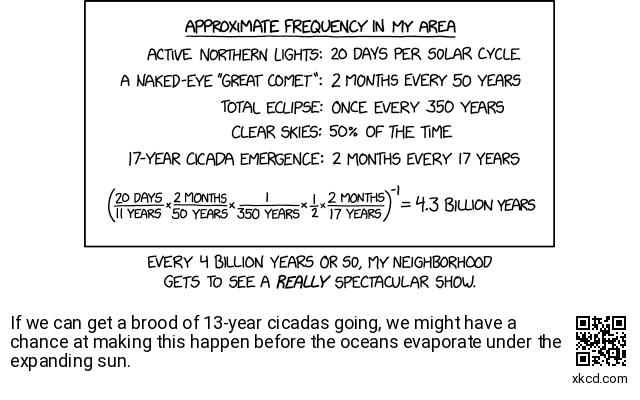 APPROXIMATE FREQUENCY IN MY AREA
ACTIVE NORTHERN LIGHTS: 20 DAYS PER SOLAR CYCLE
A NAKED-EYE "GREAT COMET": 2 MONTHS EVERY 50 YEARS
TOTAL ECLIPSE: ONCE EVERY 350 YEARS
CLEAR SKIES: 50% OF THE TIME
17-YEAR CICADA EMERGENCE: 2 MONTHS EVERY 17 YEARS
(20 DAYS/11 YEARS × 2 MONTHS/50 YEARS × 1/350 YEARS × 1/2 × 2 MONTHS/17 YEARS)⁻¹ = 4.3 BILLION YEARS
EVERY 4 BILLION YEARS OR SO, MY NEIGHBORHOOD
GETS TO SEE A REALLY SPECTACULAR SHOW.
If we can get a brood of 13-year cicadas going, we might have a
chance at making this happen before the oceans evaporate under the
expanding sun.
xkcd.com